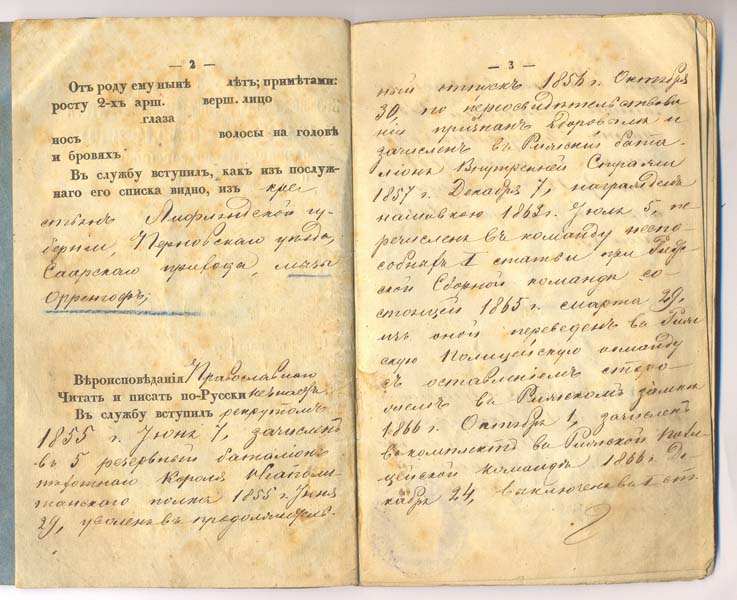 — 2 —
Отъ роду ему нынѣ лѣтъ; примѣтами:
росту 2-хъ арш. верш. лицо
глаза
носъ волосы на головѣ
и бровяхъ
Въ службу вступилъ, какъ изъ послуж-
наго его списка видно, изъ кре
стьянъ Лифляндской гу-
берніи, Перновскаго уѣзда,
Саарскаго прихода, мызы
Орренгофъ;
Вѣроисповѣданія Православнаго
Читать и писать по-Русски
Въ службу вступилъ рекрутомъ
1855 г. Іюня 7, зачисленъ
въ 5 резервный баталіонъ
пѣхотнаго Короля Неаполи-
танскаго полка 1855 г. Іюня
29, уволенъ въ продолжитель-
— 3 —
ный отпускъ 1856 г. Октября
30, по переосвидѣтельствова
ніи признанъ здоровымъ и
зачисленъ въ Рижскій бата-
ліонъ Внутренней Стражи
1857 г. Декабря 7, награжденъ
нашивкою 1863 г. Іюля 5, пе
речисленъ въ команду неспо-
собныхъ 1 статьи при Риж-
ской Сборной командѣ со-
стоящей 1865 г. марта 29,
изъ оной переведенъ въ Риж-
скую Полицейскую команду
съ оставленіемъ сторо-
жемъ въ Рижскомъ замкѣ
1866 г. Октября 1, зачисленъ
въ комплектъ въ Рижской Поли-
цейской команды 1866 г. Де-
кабря 24, выключенъ въ 1 ст-